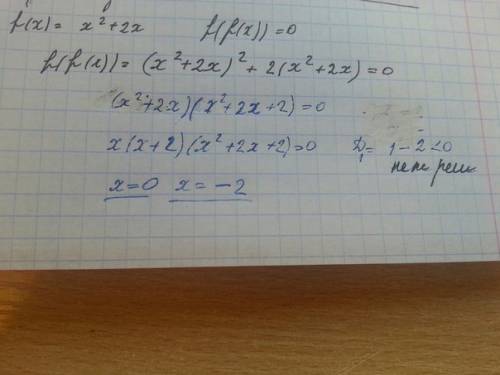 f(x) = x² + 2x   f(f(x)) = 0
f(f(x)) = (x² + 2x)² + 2(x² + 2x) = 0
(x² + 2x)(x² + 2x + 2) = 0
x(x + 2)(x² + 2x + 2) = 0   D₁ = 1 − 2 < 0
x = 0   x = −2   нет реш